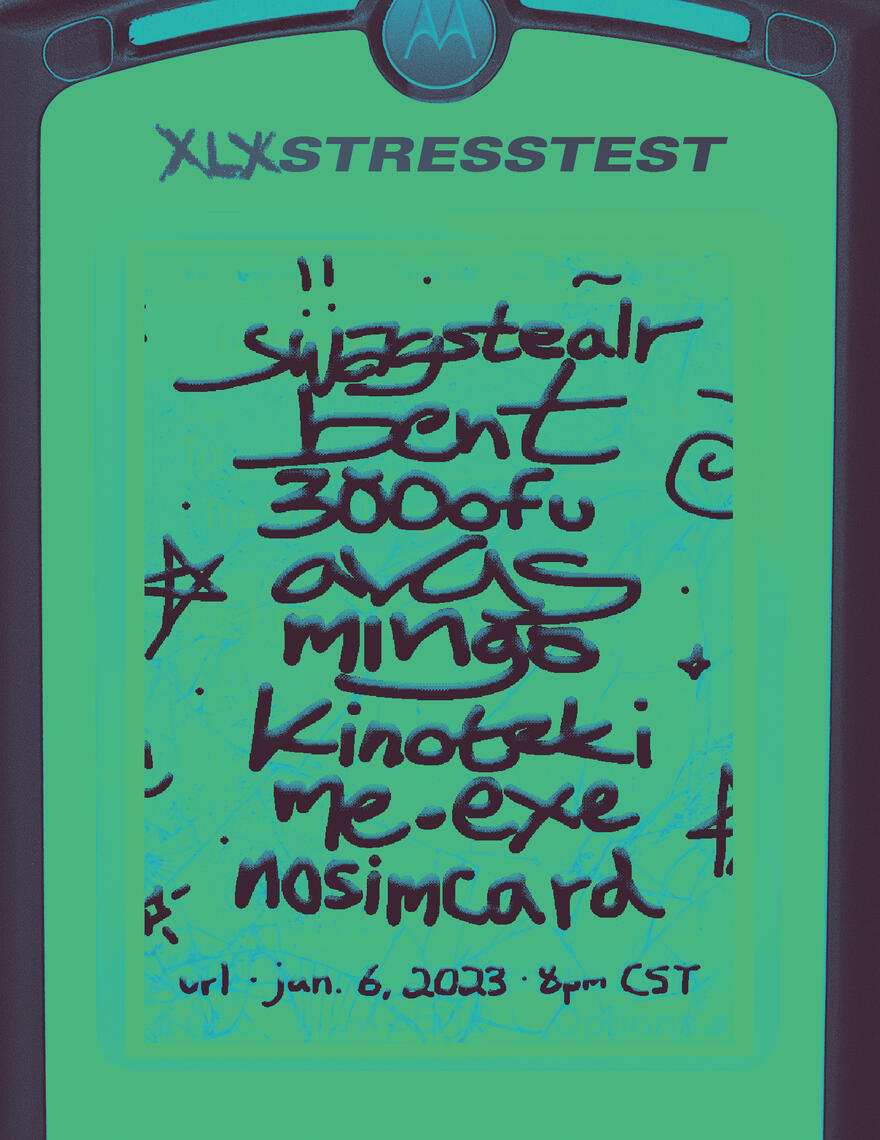 XLXSTRESSTEST
swagstealr
bent
300ofu
avas
mingo
kinoteki
me-exe
nosimcard
url · jun. 6, 2023 · 8pm CST
Options